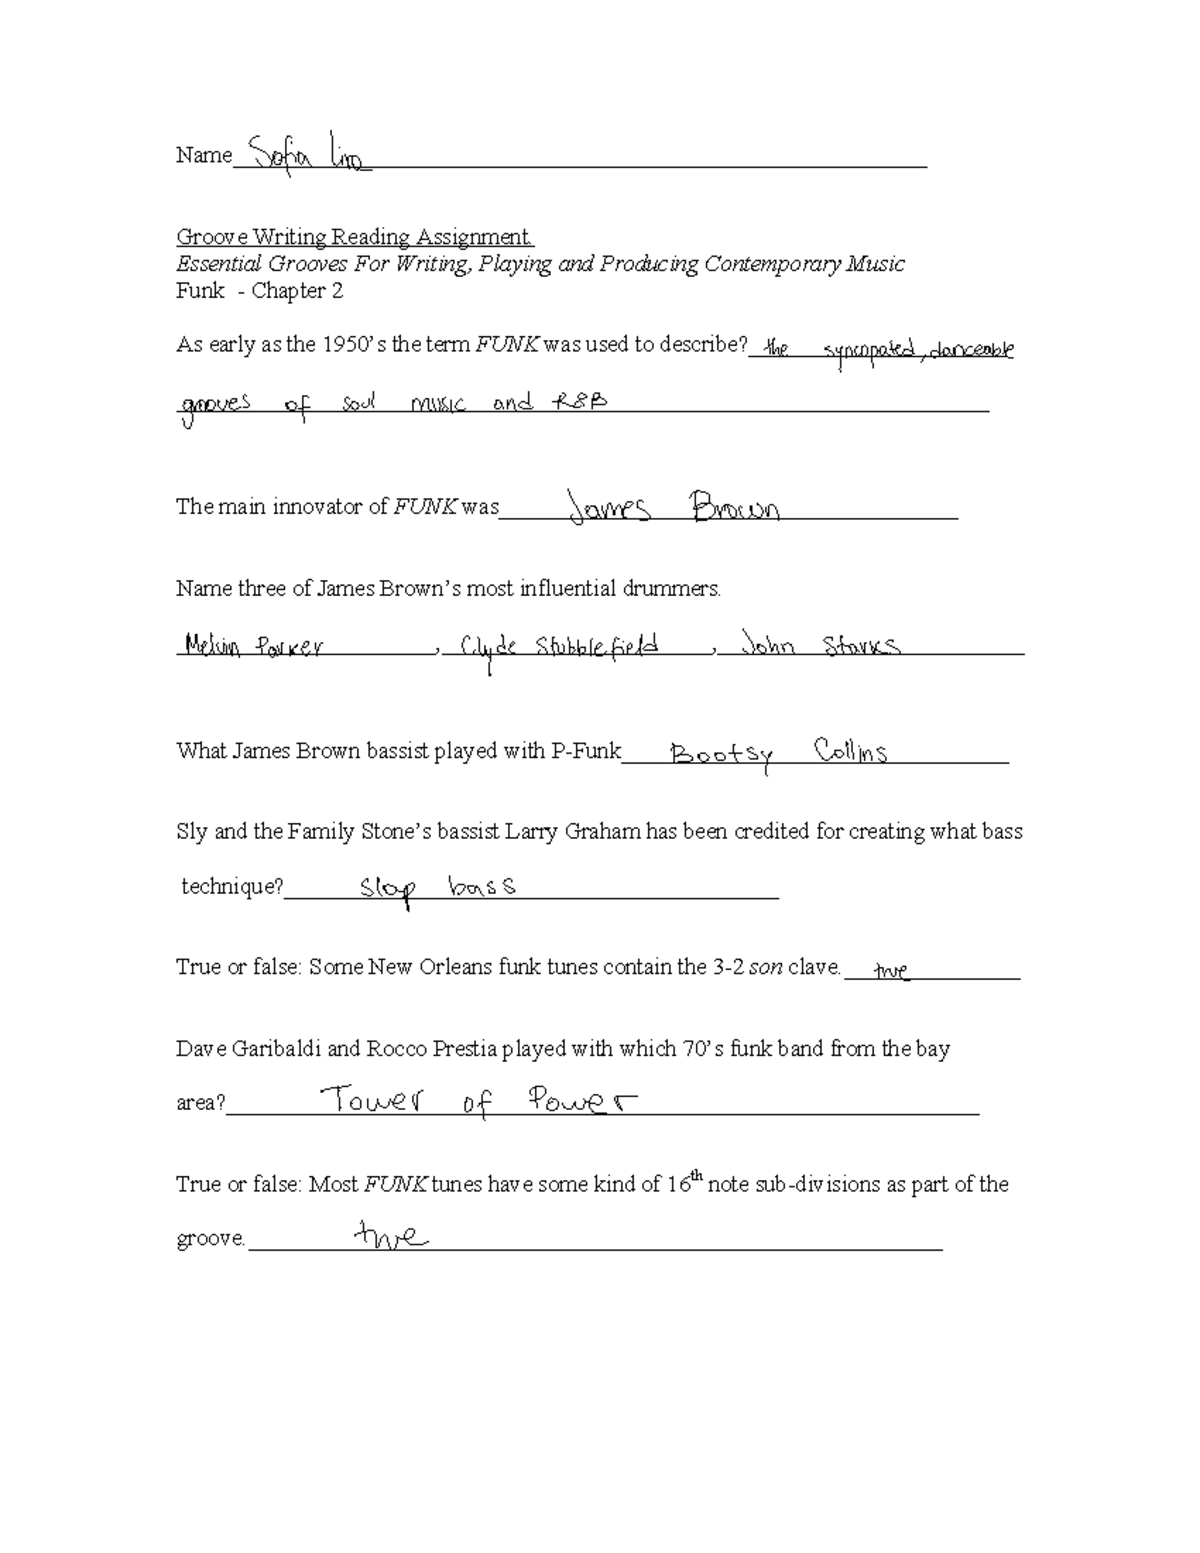 Name Sofia Lira
Groove Writing Reading Assignment.
Essential Grooves For Writing, Playing and Producing Contemporary Music
Funk - Chapter 2
As early as the 1950's the term FUNK was used to describe? the syncopated, danceable
grooves of soul music and R&B
The main innovator of FUNK was James Brown
Name three of James Brown's most influential drummers.
Melvin Parker, Clyde Stubblefield, John Starks
What James Brown bassist played with P-Funk Bootsy Collins
Sly and the Family Stone's bassist Larry Graham has been credited for creating what bass
technique? slap bass
True or false: Some New Orleans funk tunes contain the 3-2 son clave. true
Dave Garibaldi and Rocco Prestia played with which 70's funk band from the bay
area? Tower of Power
True or false: Most FUNK tunes have some kind of 16th note sub-divisions as part of the
groove. true